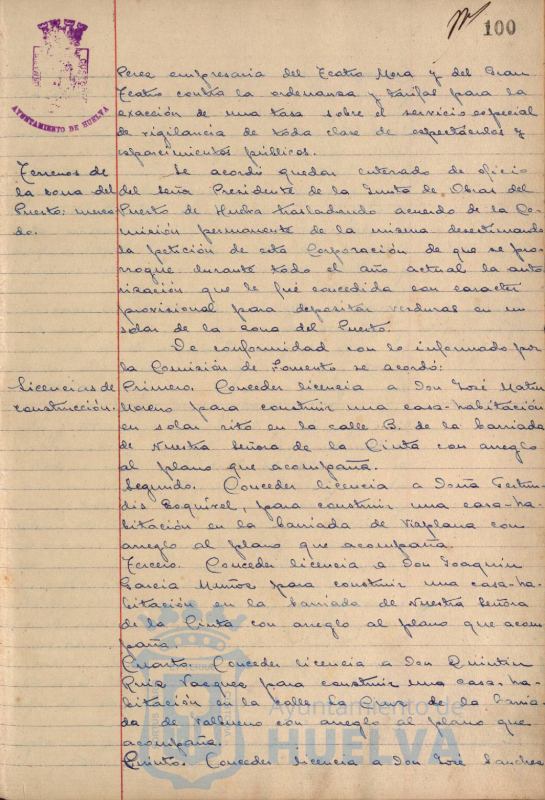 100
AYUNTAMIENTO DE HUELVA
Perez empresaria del Teatro Mora y del Gran
Teatro contra la ordenanza y tarifas para la
exacción de una tasa sobre el servicio especial
de vigilancia de toda clase de espectáculos y
esparcimientos públicos.
Terrenos de
la zona del
Puerto: merca-
do.
Se acordó quedar enterado de oficio
del señor Presidente de la Junta de Obras del
Puerto de Huelva trasladando acuerdo de la Co-
misión permanente de la misma desestimando
la petición de esta Corporación de que se pro-
rrogue durante todo el año actual la auto-
rización que le fué concedida con caracter
provisional para depositar verduras en un
solar de la zona del Puerto.
De conformidad con lo informado por
la Comisión de Fomento se acordó:
Licencias de
construcción.
Primero. Conceder licencia a Don José Mateo
Moreno para construir una casa-habitación
en solar sito en la calle B. de la barriada
de Nuestra Señora de la Cinta con arreglo
al plano que acompaña.
Segundo. Conceder licencia a Doña Gertru-
dis Esquivel, para construir una casa-ha-
bitación en la barriada de Viaplana con
arreglo al plano que acompaña.
Tercero. Conceder licencia a Don Joaquin
Garcia Muñoz para construir una casa-ha-
bitación en la barriada de Nuestra Señora
de la Cinta con arreglo al plano que acom-
paña.
Cuarto. Conceder licencia a Don Quintin
Ruiz Vazquez para construir una casa-ha-
bitación en la calle La Cruz de la barria-
da de Valbueno con arreglo al plano que
acompaña.
Quinto. Conceder licencia a Don José Sanchez
Ayuntamiento de
HUELVA